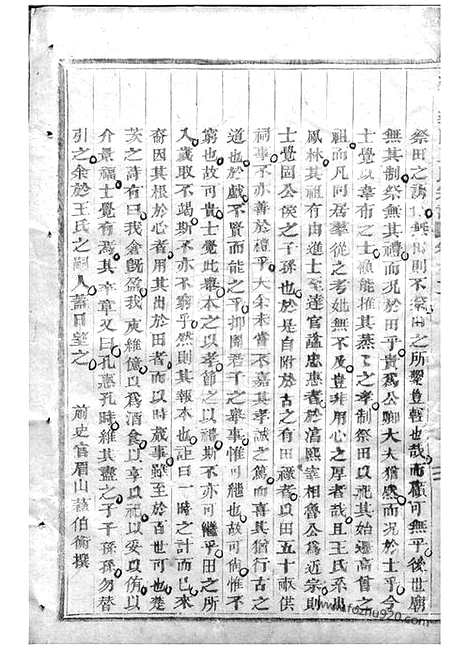 祭田之
無其制祭無其禮而況於田乎貴為公卿大夫猶慼而況於士乎今
士覺以韋布之士猶能推其蒸之孝制祭田以祀其始遷高曾之
祖而凡同居羣從之考妣無不及豈非用心之厚者哉且王氏系出
鳳林其祖有由進士至達官謚忠惠者於淸熙宰相魯公為近宗則
士覺固公侯之子孫也於是自附於古之有田祿者以田五十畝供
祠事不亦善於禮乎大余未嘗不嘉其孝誠之篤而喜其猶行古之
道也於戲不賢而能之乎抑聞君子之舉事惟可繼也故可尙惟不
窮也故可貴士覺此舉本之以孝節之以禮斯不亦可繼乎田之所
入歲取不竭斯不亦不窮乎然則其報本也詎曰一時之計而已來
裔因其根於心者用其出於田者而以時歲事雖至於百世可也楚
茨之詩有曰我倉旣盈我庾維億以為酒食以享以祀以妥以侑以
介景福士覺有焉其卒章又曰孔惠孔時維其盡之子子孫孫勿替
引之余於王氏之嗣人蓋日望之
前史官眉山蘇伯衡撰
www.fozhu920.com